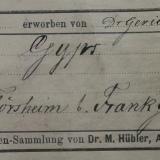 erworben von Dr Geric
Gyps.
örsheim b. Frankf
en-Sammlung von Dr. M. Hübler, A